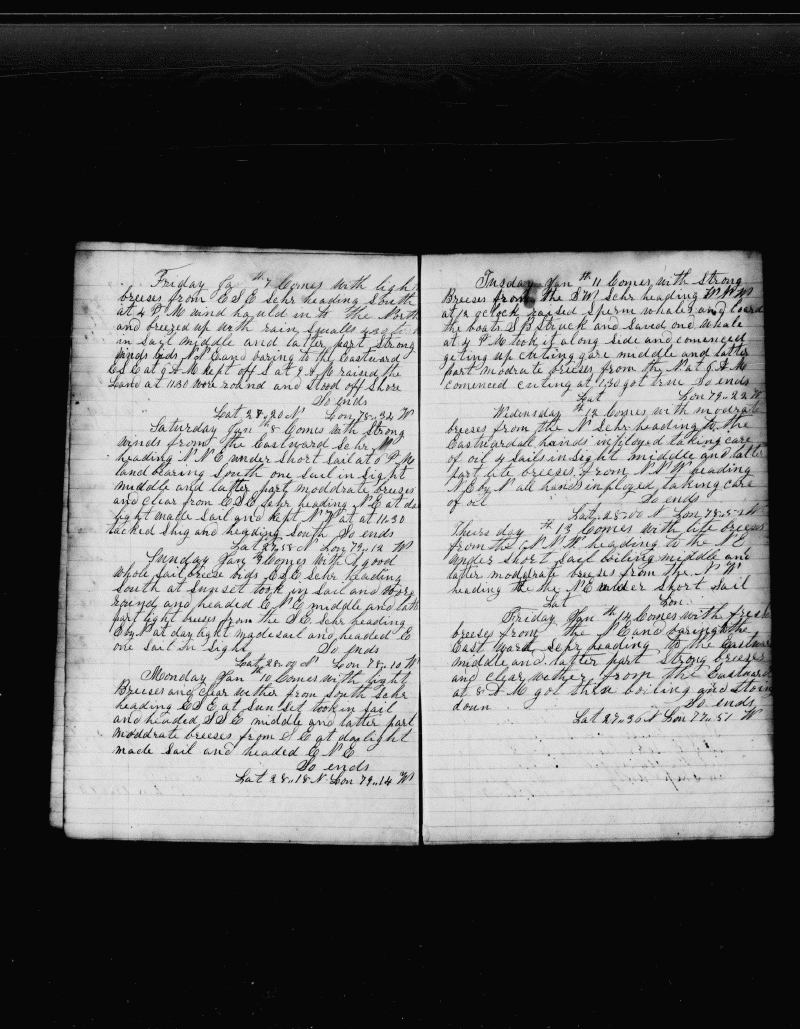 Friday Ja th 7 Comes with ligh
breeses from E S E Schr heading South
at 4 P M wind hauld in to the North
and breezed up with rain squals
in sail middle and latter part strong
winds bids N N E and baring to the Eastward
E S E at 9 A M kept off S at 9 A M raised the
Land at 11.30 wore round and stood off shore
So ends
Lat 28..20 N Lon 78..32 W
Saturday Jan th 8 Comes with strong
winds from the Eastward Schr
heading N N E under short sail at 6 P M
land bearing South one sail in sight
middle and latter part moddrate breeses
and clear from E S E Schr heading N E at da
light made sail and kept N W at at 11.30
tacked Ship and heading South So ends
Lat 27..58 N Lon 79..12 W
Sunday Jan 9 Comes with a good
whole sail briese bids E S E Schr heading
South at Sunset took in sail and wore
round and headed E N E middle and latt
part light breses from the S E Schr heading
E by N at day light made sail and headed E
one Sail in Sight So ends
Lat 28..00 N Lon 78..10 W
Monday Jan th 10 Comes with light
Breeses and clear wether from South Schr
heading E S E at Sun Set took in sail
and headed S S E middle and latter part
moddrate breeses from S E at daylight
made sail and headed E N E
So ends
Lat 28..18 N Lon 79..14 W
Tusday Jan th 11 Comes with strong
Breeses from the S W Schr heading W N W
at 12 oclock raised Sperm whales and loard
the boats S B Struck and saved one whale
at 4 P M took it along side and comenced
geting up cuting gare middle and latter
part modrate breeses from the N at 6 A M
comenced cuting at 7.30 got true So ends
Lat Lon 79..22 W
Wednesday th 12 Comes with modrate
breeses from the N Schr heading to the
Eastward all hands imployed taking care
of oil 4 sails in sight middle and latter
part lite breeses from N N W heading
N E by N all hands inployed taking care
of oil So ends
Lat 28..00 N Lon 78..54
Thursday th 13 Comes with lite breeses
from the N N W heading to the N E
under short sail boiling middle and
latter modgrate breeses from the N W
heading the the N E under short sail
Lat Lon
Friday Jan th 14 Comes with fresh
breeses from the N E and baring the
East ward Schr heading to the Eastwar
middle and latter part strong breeses
and clear wether from the Eastward
at 8 A M got thru boiling and stoing
doun So ends
Lat 27..36 N Lon 77..51 W